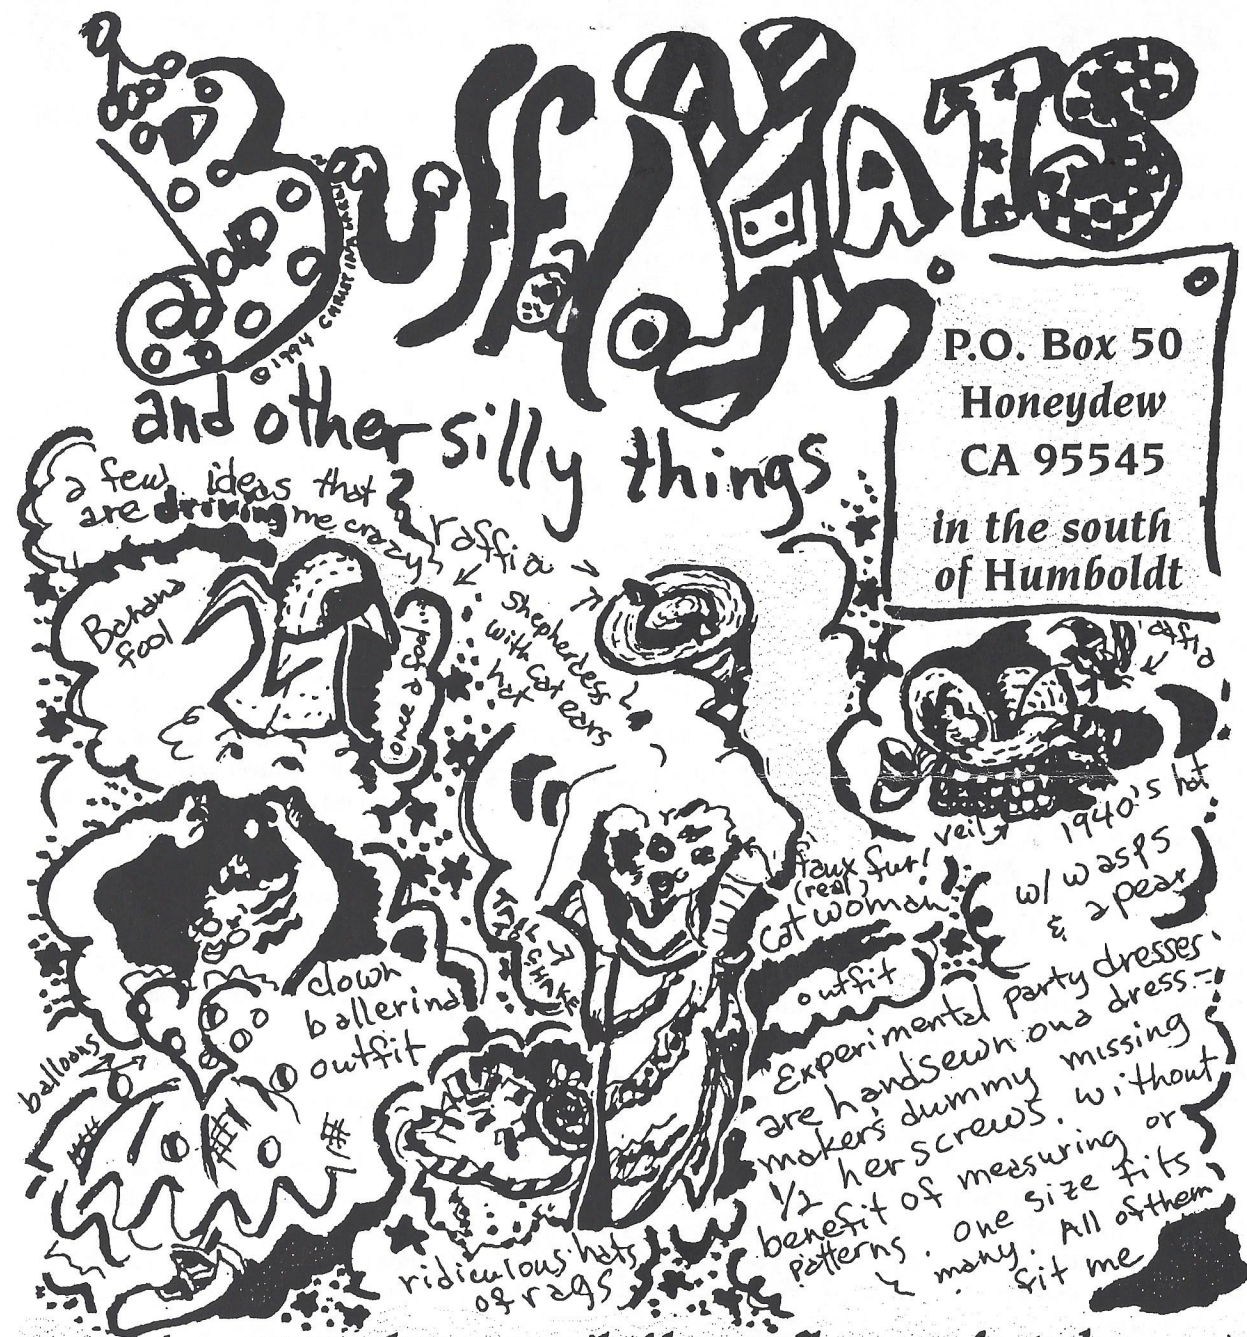 Buffalo HATS
©1994
and other silly things
P.O. Box 50
Honeydew
CA 95545
in the south
of Humboldt
a few ideas that
are driving me crazy
raffia
Banana
fool
once a fool...
Shepherdess
with cat ears
hat
raffia
veil
1940's hat
w/ wasps
& a pear
faux fur!
(real)
cat woman
outfit
clown
ballerina
outfit
balloons
ridiculous hats
of rags
Experimental party dresses
are handsewn on a dress-
makers' dummy missing
1/2 her screws. without
benefit of measuring or
patterns. One size fits
many. All of them
fit me